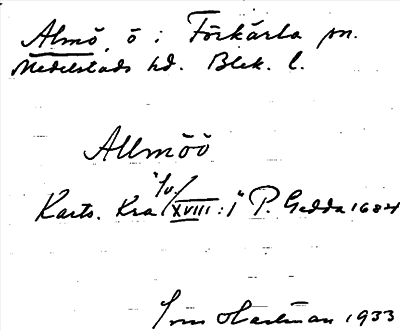 Almö, ö i Förkärla sn.
Medelstads hd. Blek. l.
Allmöö
Karto. Kra XVIII:1 P. Gedda 1684
Hartman 1933